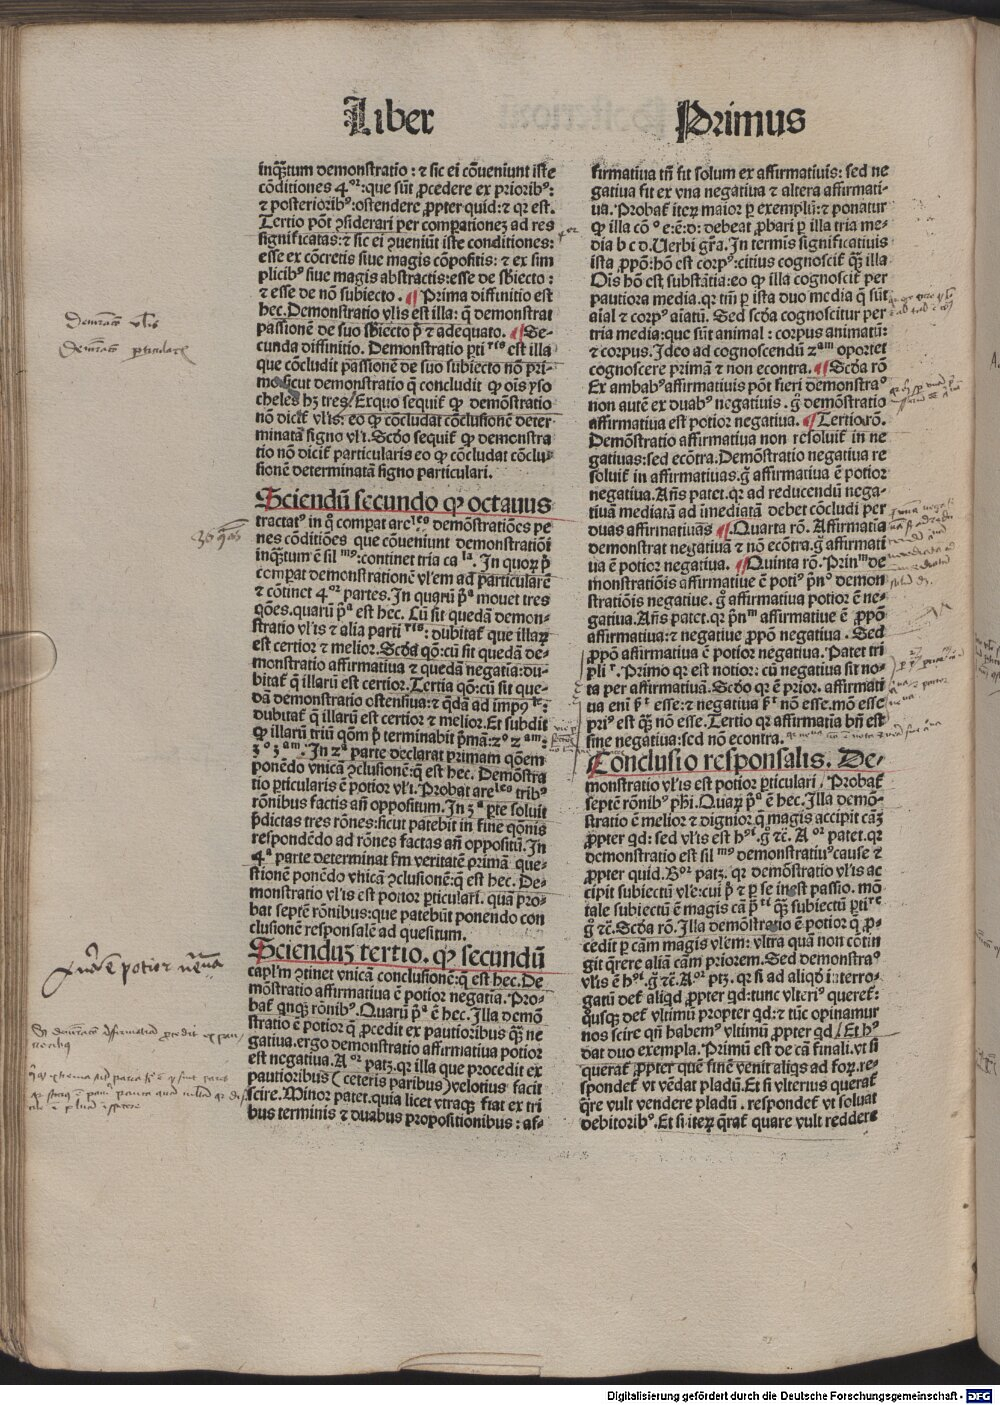 Liber
Primus
inq̃tum demonstratio : ⁊ sic ei cõueniunt iste
cõditiones 4ᵒʳ:que sũt ꝓcedere ex priorib⁹:
⁊ posteriorib⁹:ostendere ꝓpter quid:⁊ qꝛ est.
Tertio põt ꝯsiderari per comparationeꝫ ad res
significatas:⁊ sic ei ꝯueniũt iste conditiones:
esse ex cõcretis siue magis cõpositis: ⁊ ex sim
plicib⁹ siue magis abstractis:esse de sbiecto :
⁊ esse de nõ subiecto . ¶ Prima diffinitio est
hec.Demonstratio vl'is est illa: q̃ demonstrat
passionẽ de suo sbiecto p̃ ⁊ adequato. ¶ Se-
cunda diffinitio. Demonstratio ꝑtiʳⁱˢ est illa
que cõcludit passionẽ de suo subiecto nõ pri-
mo:sicut demonstratio q̃ concludit ꝙ ois yso
cheles hꝫ tres/Exquo sequit̃ ꝙ demõstratio
nõ dicit̃ vl'is: eo ꝙ cõcludat cõclusionẽ deter-
minatã signo vl'i.Scd̃o sequit̃ ꝙ demonstra
tio nõ dicit̃ particularis eo ꝙ cõcludat cõclu-
sionẽ determinatã signo particulari.
Sciendũ secundo ꝙ octauus
tractat⁹ in q̃ comparat areˡᵉˢ demõstratiões pe
nes cõditiões que cõueniunt demonstratiõi
inq̃tum ẽ silᵐ⁹:continet tria caˡᵃ. In quoꝝ p̃
comparat demonstrationẽ vl'em ad particularẽ
⁊ cõtinet 4ᵒʳ partes.In quaꝝ p̃ᵃ mouet tres
q̃ões.quarũ p̃ᵃ est hec. Cũ sit quedã demon-
stratio vl'is ⁊ alia partiʳⁱˢ: dubitat̃ que illaꝝ
est certior ⁊ melior.Scd̃a qõ:cũ sit quedã de-
monstratio affirmatiua ⁊ quedã negatiua:du-
bitat̃ q̃ illarũ est certior.Tertia qõ:cũ sit que-
dã demonstratio ostensiua:⁊ q̃dã ad impoᵗᵉ:
dubitat̃ q̃ illarũ est certior ⁊ melior.Et subdit
ꝙ illarũ triũ qõm p̃ terminabit p̃mã:2° 2ᵃᵐ:
3° 3ᵃᵐ. In 2ᵃ parte declarat primam qõem
ponẽdo vnicã ꝯclusionẽ:q̃ est hec. Demõstra
tio ꝑticularis ẽ potior vl'i.Probat areˡᵉˢ trib⁹
rõnibus factis añ oppositum.In 3ᵃ ꝑte soluit
p̃dictas tres rõnes:sicut patebit in fine qõnis
respondẽdo ad rõnes factas añ oppositũ.In
4ᵃ parte determinat ẜm veritatẽ primã que-
stionẽ ponẽdo vnicã ꝯclusionẽ:q̃ est hec. De-
monstratio vl'is est potior ꝑticulari. quã pro-
bat septẽ rõnibus:que patebũt ponendo con
clusionẽ responsalẽ ad quesitum.
Sciendũꝫ tertio. ꝙ secundũ
capl'm ꝯtinet vnicã conclusionẽ:q̃ est hec.De
mõstratio affirmatiua ẽ potior negatiua. Pro-
bat̃ qnqꝫ rõnib⁹. Quarũ p̃ᵃ ẽ hec. Illa demõ
stratio ẽ potior q̃ ꝓcedit ex pautioribus qꝫ ne
gatiua.ergo demonstratio affirmatiua potior
est negatiua. Aᵒʳ patꝫ.qꝛ illa que procedit ex
pautioribus (ceteris paribus) velotius facit
scire. Minor patet.quia licet vtraqꝫ fiat ex tri
bus terminis ⁊ duabus propositionibus : af-
firmatiua tñ fit solum ex affirmatiuis: sed ne
gatiua fit ex vna negatiua ⁊ altera affirmati-
ua. Probat̃ iteꝝ maior ꝑ exemplũ:⁊ ponatur
ꝙ illa cõ ᵒ e:ẽ:d: debeat ꝓbari ꝑ illa tria me-
dia b c d.Uerbi gr̃a. In termis significatiuis
ista ꝓpõ:hõ est corp⁹:citius cognoscit̃ qꝫ illa
Ois hõ est substãtia:eo ꝙ illa cognoscit̃ per
pautiora media.qꝛ tm̃ ꝑ ista duo media q̃ sũt
aial ⁊ corp⁹ aiatũ. Sed scd̃a cognoscitur per
tria media:que sũt animal : corpus animatũ:
⁊ corpus. Ideo ad cognoscendũ 2ᵃᵐ oportet
cognoscere primã ⁊ non econtra. ¶ Scd̃a rõ
Ex ambab⁹ affirmatiuis põt fieri demonstraᵒ
non autẽ ex duab⁹ negatiuis . g̃ demõstratio
affirmatiua est potior negatiua. ¶ Tertio rõ.
Demõstratio affirmatiua non resoluit̃ in ne
gatiuas:sed ecõtra.Demõstratio negatiua re
soluit̃ in affirmatiuas.g̃ affirmatiua ẽ potior
negatiua. Añs patet.qꝛ ad reducendũ nega-
tiuã mediatã ad imediatã debet cõcludi per
duas affirmatiuas ¶ Quarta rõ. Affirmatia
demonstrat negatiuã ⁊ nõ ecõtra.g̃ affirmati
ua ẽ potior negatiua. ¶ Quinta rõ. Prinᵐ de
monstratiõis affirmatiue ẽ poti⁹ p̃n° demon
stratiõis negatiue. g̃ affirmatiua potior ẽ ne-
gatiua.Añs patet.qꝛ p̃nᵐ affirmatiue ẽ ꝓpõ
affirmatiua:⁊ negatiue ꝓpõ negatiua . Sed
ꝓpõ affirmatiua ẽ potior negatiua. Patet tri
pliʳ. Primo qꝛ est notior: cũ negatiua sit no-
ta per affirmatiuã. Scd̃o qꝛ ẽ prior. affirmati
ua eni p̃ᵗ esse:⁊ negatiua p̃ᵗ nõ esse.mõ esse
pri⁹ est qꝫ nõ esse. Tertio qꝛ affirmatia bñ est
sine negatiua:sed nõ econtra.
Conclusio responsalis. De-
monstratio vl'is est potior ꝑticulari / Probat̃
septẽ rõnib⁹ phi. Quaꝝ p̃ᵃ ẽ hec. Illa demõ-
stratio ẽ melior ⁊ dignior q̃ magis accipit cãꝫ
ꝓpter qd: sed vl'is est h⁹ⁱ.g̃ ⁊c̃. A ᵒʳ patet.qꝛ
demonstratio est silᵐ⁹ demonstratiu⁹ cause ⁊
ꝓpter quid. Bᵒʳ patꝫ. qꝛ demõstratio vl'is ac
cipit subiectũ vl'e:cui p̃ ⁊ ꝑ se inest passio. mõ
tale subiectũ ẽ magis cã p̃ᵗⁱ qꝫ subiectũ ꝑtiʳᵉ
g̃ ⁊c̃. Scd̃a rõ. Illa demõstratio ẽ potior q̃ ꝓ-
cedit ꝑ cãm magis vlẽm: vltra quã non cõtin
git q̃rere aliã cãm priorem. Sed demonstra⁹
vl'is ẽ h⁹ⁱ.g̃ ⁊c̃.Aᵒʳ ptꝫ. qꝛ si ad aliqd iterro-
gatũ det̃ aliqd ꝓpter qd:tunc vlteri⁹ queret̃:
qusqꝫ det̃ vltimũ propter qd:⁊ tũc opinamur
nos scire qñ habem⁹ vltimũ ꝓpter qd / Et h⁹
dat duo exempla. Primũ est de cã finali.vt si
querat̃ ꝓpter quẽ finẽ venit aliqs ad foꝝ.re-
spondet̃ vt vẽdat pladũ.Et si vlterius querat̃
q̃re vult vendere pladũ . respondet̃ vt soluat
debitorib⁹.Et si iteꝝ q̃rat̃ quare vult reddere
Digitalisierung gefördert durch die Deutsche Forschungsgemeinschaft - DFG